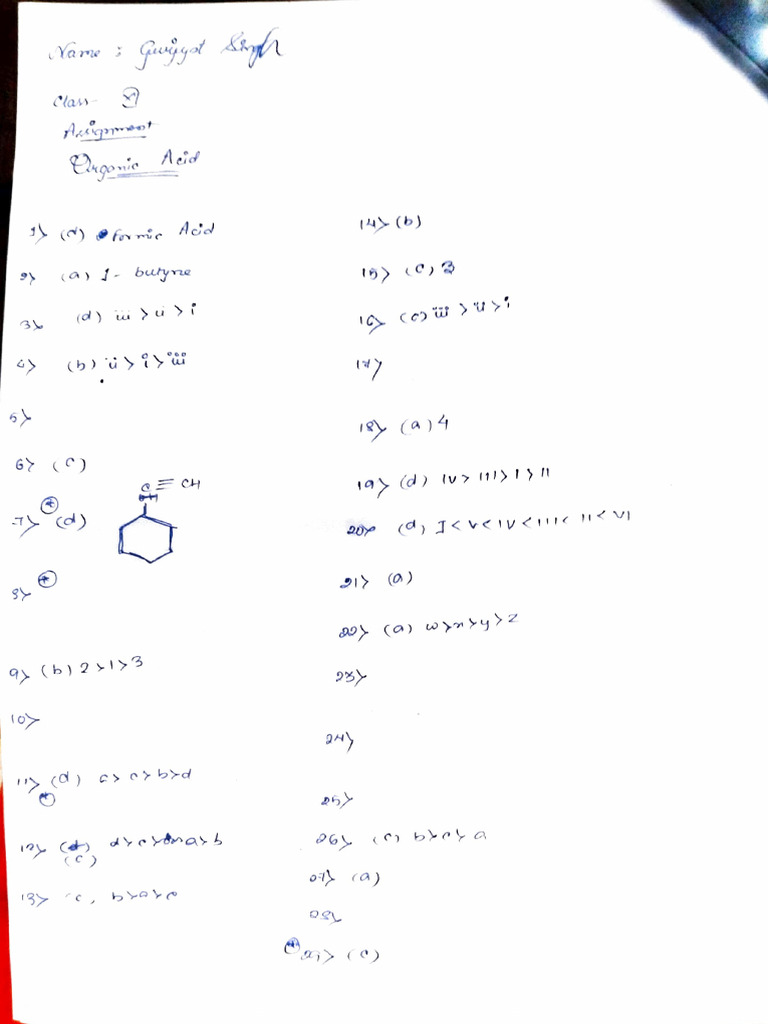 Name : Gurjyot Singh
Class - XI
Assignment
Organic Acid
1> (d) formic Acid
2> (a) 1- butyne
3> (d) iii > ii > i
4> (b) ii > i > iii
5>
6> (c)
7> (d)
C ≡ CH
8>
9> (b) 2 > 1 > 3
10>
11> (d) > c > b > d
12> (c) d > c > a > b
13> c, b > a > c
14> (b)
15> (c) 3
16> (c) iii > ii > i
17>
18> (a) 4
19> (d) IV > III > I > II
20> (d) I < V < IV < III < II < VI
21> (a)
22> (a) w > x > y > z
23>
24>
25>
26> (c) b > c > a
27> (a)
28>
29> (c)